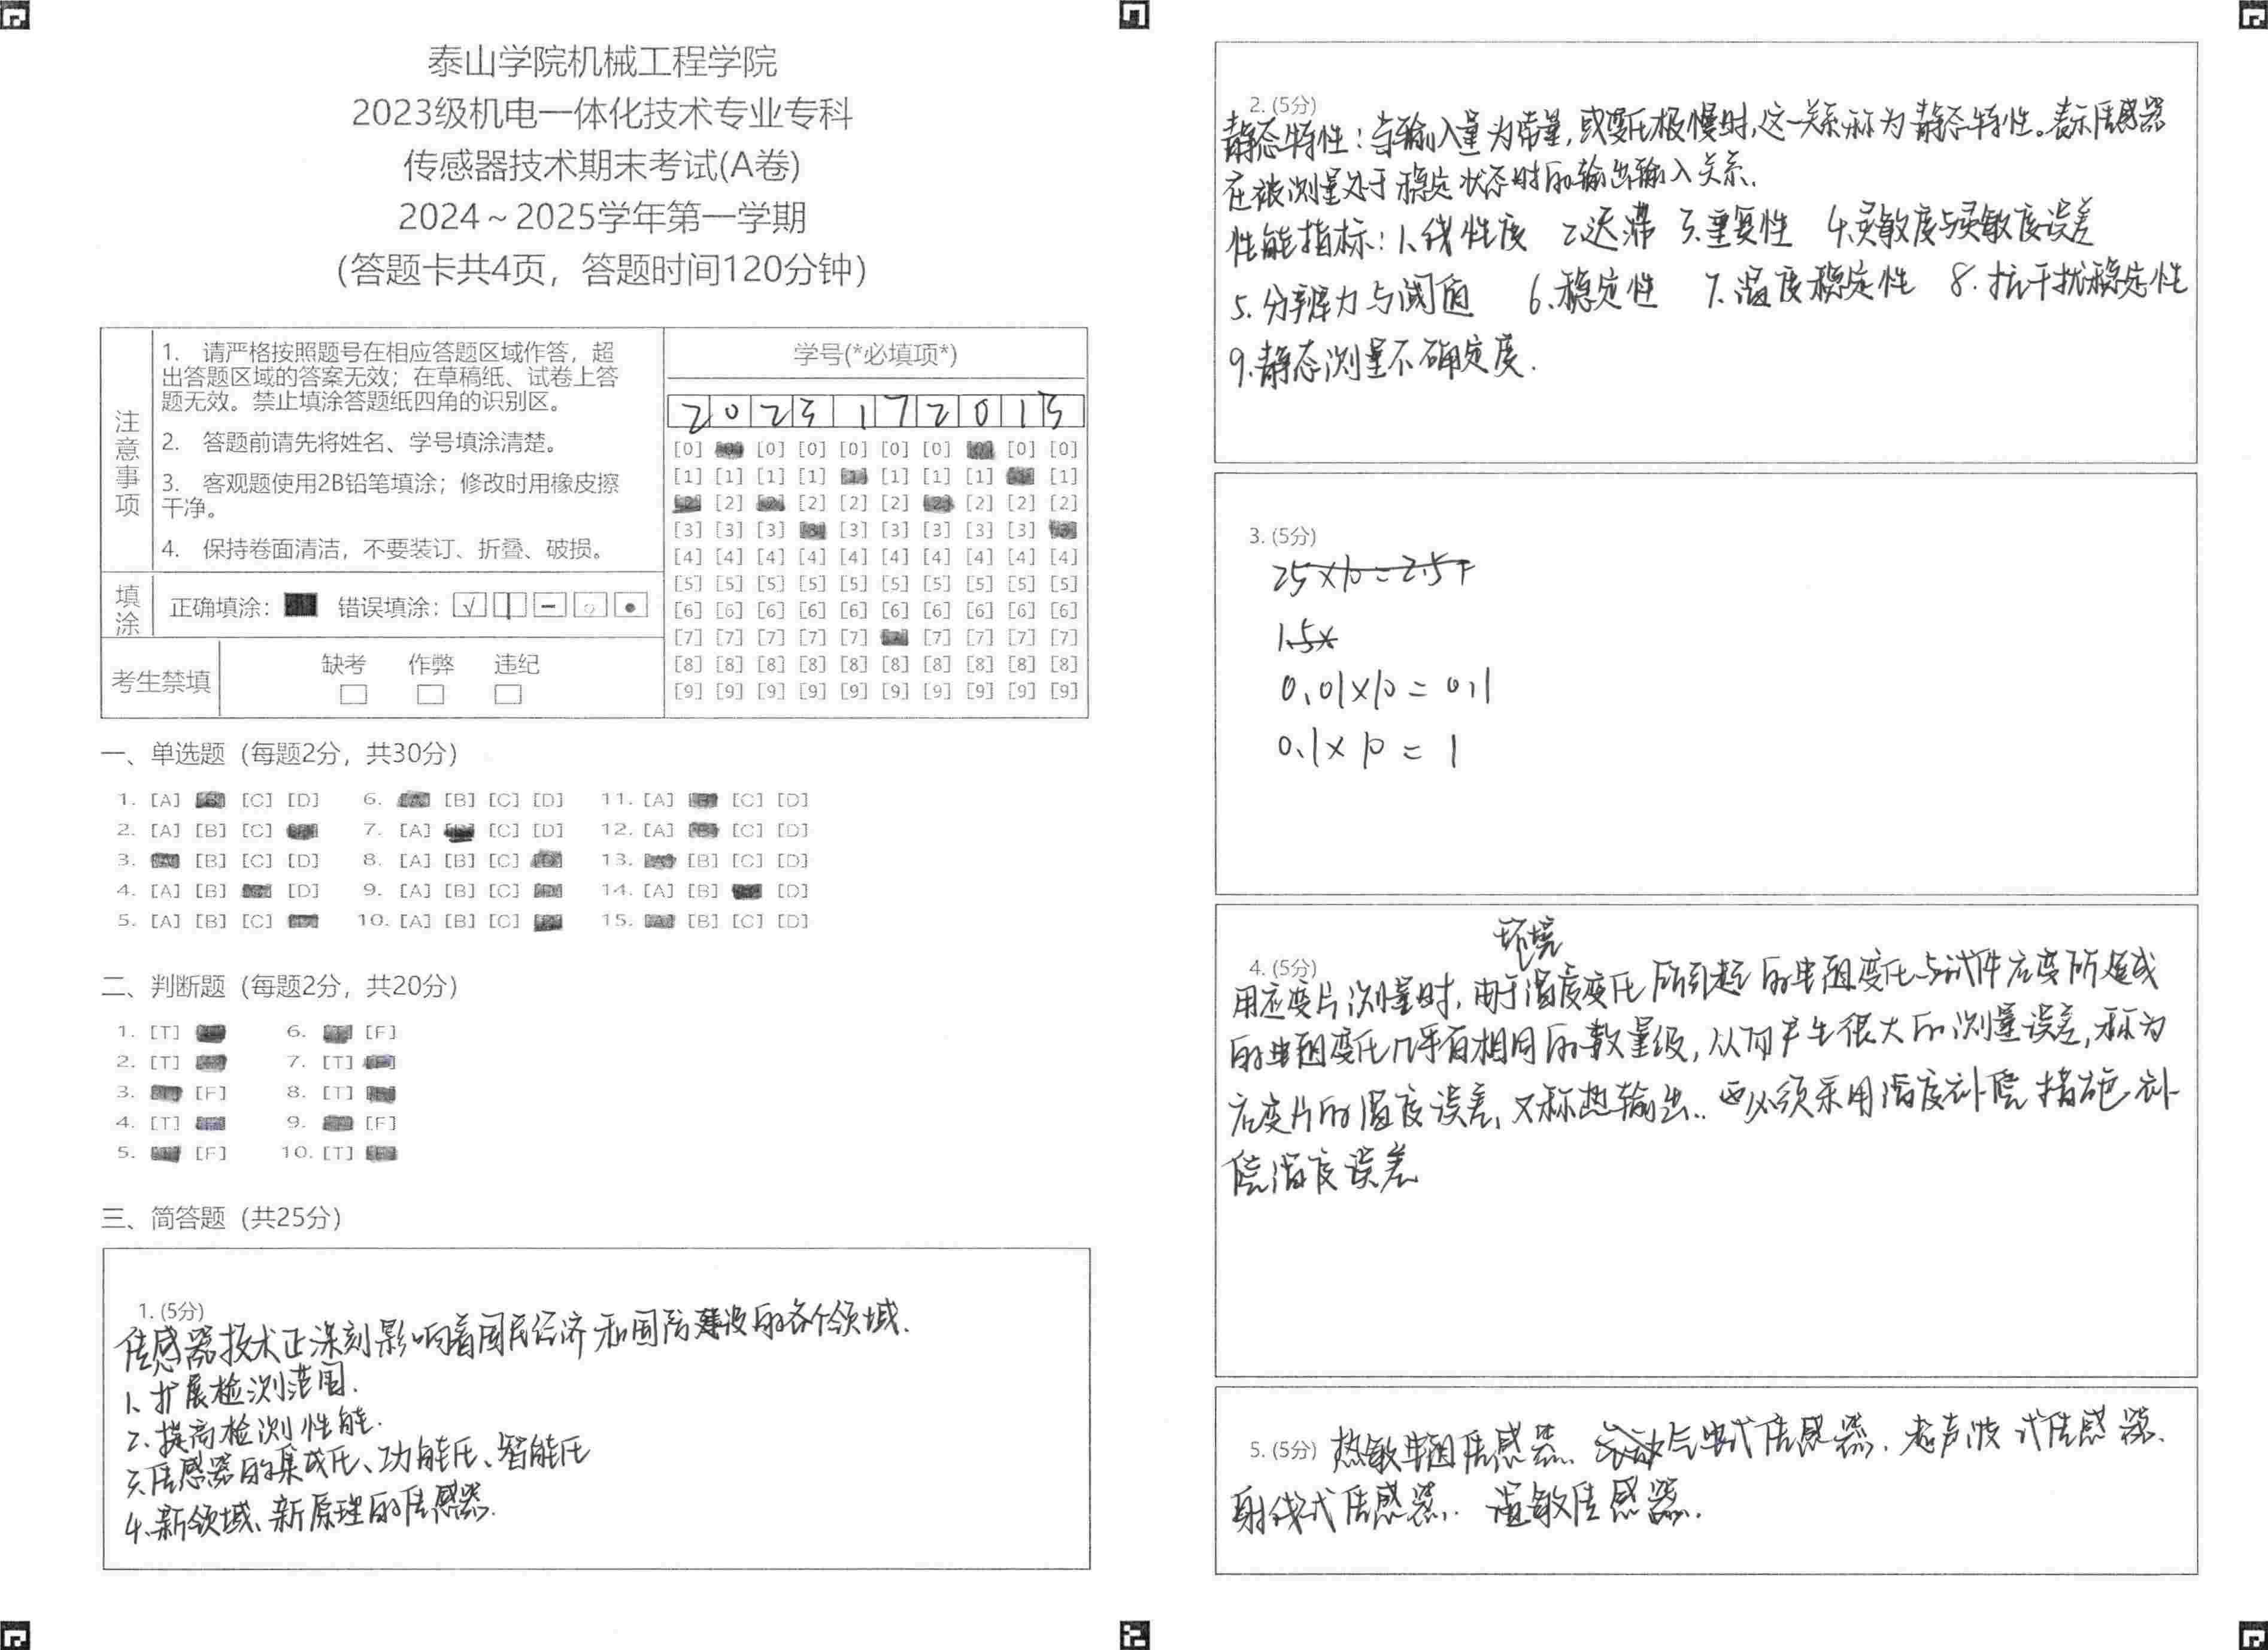 泰山学院机械工程学院
2023级机电一体化技术专业专科
传感器技术期末考试(A卷)
2024～2025学年第一学期
(答题卡共4页，答题时间120分钟)
注意事项
1. 请严格按照题号在相应答题区域作答，超
出答题区域的答案无效；在草稿纸、试卷上答
题无效。禁止填涂答题纸四角的识别区。
2. 答题前请先将姓名、学号填涂清楚。
3. 客观题使用2B铅笔填涂；修改时用橡皮擦
干净。
4. 保持卷面清洁，不要装订、折叠、破损。
填涂
正确填涂： 错误填涂：
考生禁填
缺考 作弊 违纪
学号(*必填项*)
2 0 2 3 1 7 2 0 1 3
[0] [0] [0] [0] [0] [0] [0] [0]
[1] [1] [1] [1] [1] [1] [1] [1]
[2] [2] [2] [2] [2] [2] [2]
[3] [3] [3] [3] [3] [3] [3] [3]
[4] [4] [4] [4] [4] [4] [4] [4] [4] [4]
[5] [5] [5] [5] [5] [5] [5] [5] [5] [5]
[6] [6] [6] [6] [6] [6] [6] [6] [6] [6]
[7] [7] [7] [7] [7] [7] [7] [7] [7]
[8] [8] [8] [8] [8] [8] [8] [8] [8] [8]
[9] [9] [9] [9] [9] [9] [9] [9] [9] [9]
一、单选题（每题2分，共30分）
1. [A] [C] [D] 6. [B] [C] [D] 11. [A] [C] [D]
2. [A] [B] [C] 7. [A] [C] [D] 12. [A] [C] [D]
3. [B] [C] [D] 8. [A] [B] [C] 13. [B] [C] [D]
4. [A] [B] [D] 9. [A] [B] [C] 14. [A] [B] [D]
5. [A] [B] [C] 10. [A] [B] [C] 15. [B] [C] [D]
二、判断题（每题2分，共20分）
1. [T] 6. [F]
2. [T] 7. [T]
3. [F] 8. [T]
4. [T] 9. [F]
5. [F] 10. [T]
三、简答题（共25分）
1. (5分)
传感器技术正深刻影响着国民经济和国防建设的各个领域.
1、扩展检测范围.
2、提高检测性能.
3、传感器的集成化、功能化、智能化
4、新领域、新原理的传感器.
2. (5分)
静态特性：当输入量为常量，或变化极慢时，这一关系称为静态特性。表示传感器
在被测量处于稳定状态时的输出输入关系.
性能指标：1、线性度 2、迟滞 3、重复性 4、灵敏度与灵敏度误差
5、分辨力与阈值 6、稳定性 7、温度稳定性 8、抗干扰稳定性
9、静态测量不确定度.
3. (5分)
25×10=2.5
1.5×
0.01×10=0.1
0.1×10=1
环境
4. (5分)
用应变片测量时，由于温度变化所引起的电阻变化与试件应变所造成
的电阻变化几乎有相同的数量级，从而产生很大的测量误差，称为
应变片的温度误差，又称热输出.. 必须采用温度补偿措施补
偿温度误差
5. (5分) 热敏电阻传感器、气电式传感器、超声波式传感器、
射线式传感器、湿敏传感器.